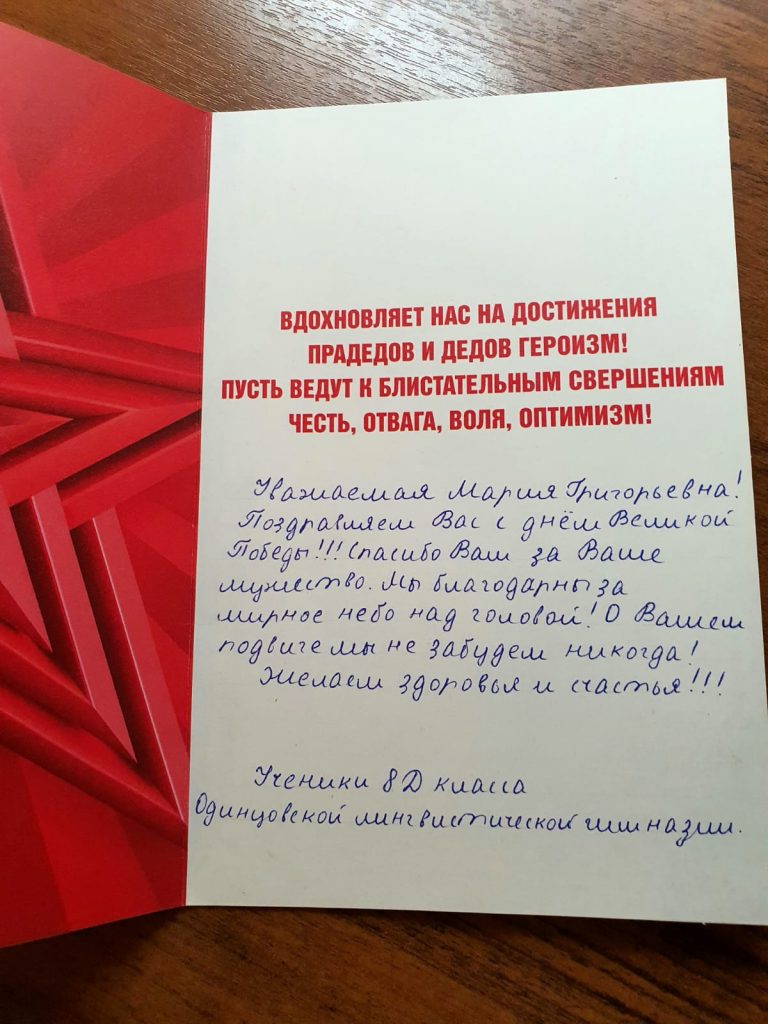 ВДОХНОВЛЯЕТ НАС НА ДОСТИЖЕНИЯ
ПРАДЕДОВ И ДЕДОВ ГЕРОИЗМ!
ПУСТЬ ВЕДУТ К БЛИСТАТЕЛЬНЫМ СВЕРШЕНИЯМ
ЧЕСТЬ, ОТВАГА, ВОЛЯ, ОПТИМИЗМ!
Уважаемая Мария Григорьевна!
Поздравляем Вас с днём Великой
Победы!!! Спасибо Вам за Ваше
мужество. Мы благодарны за
мирное небо над головой! О Вашем
подвиге мы не забудем никогда!
Желаем здоровья и счастья!!!
Ученики 8Д класса
Одинцовской лингвистической гимназии.